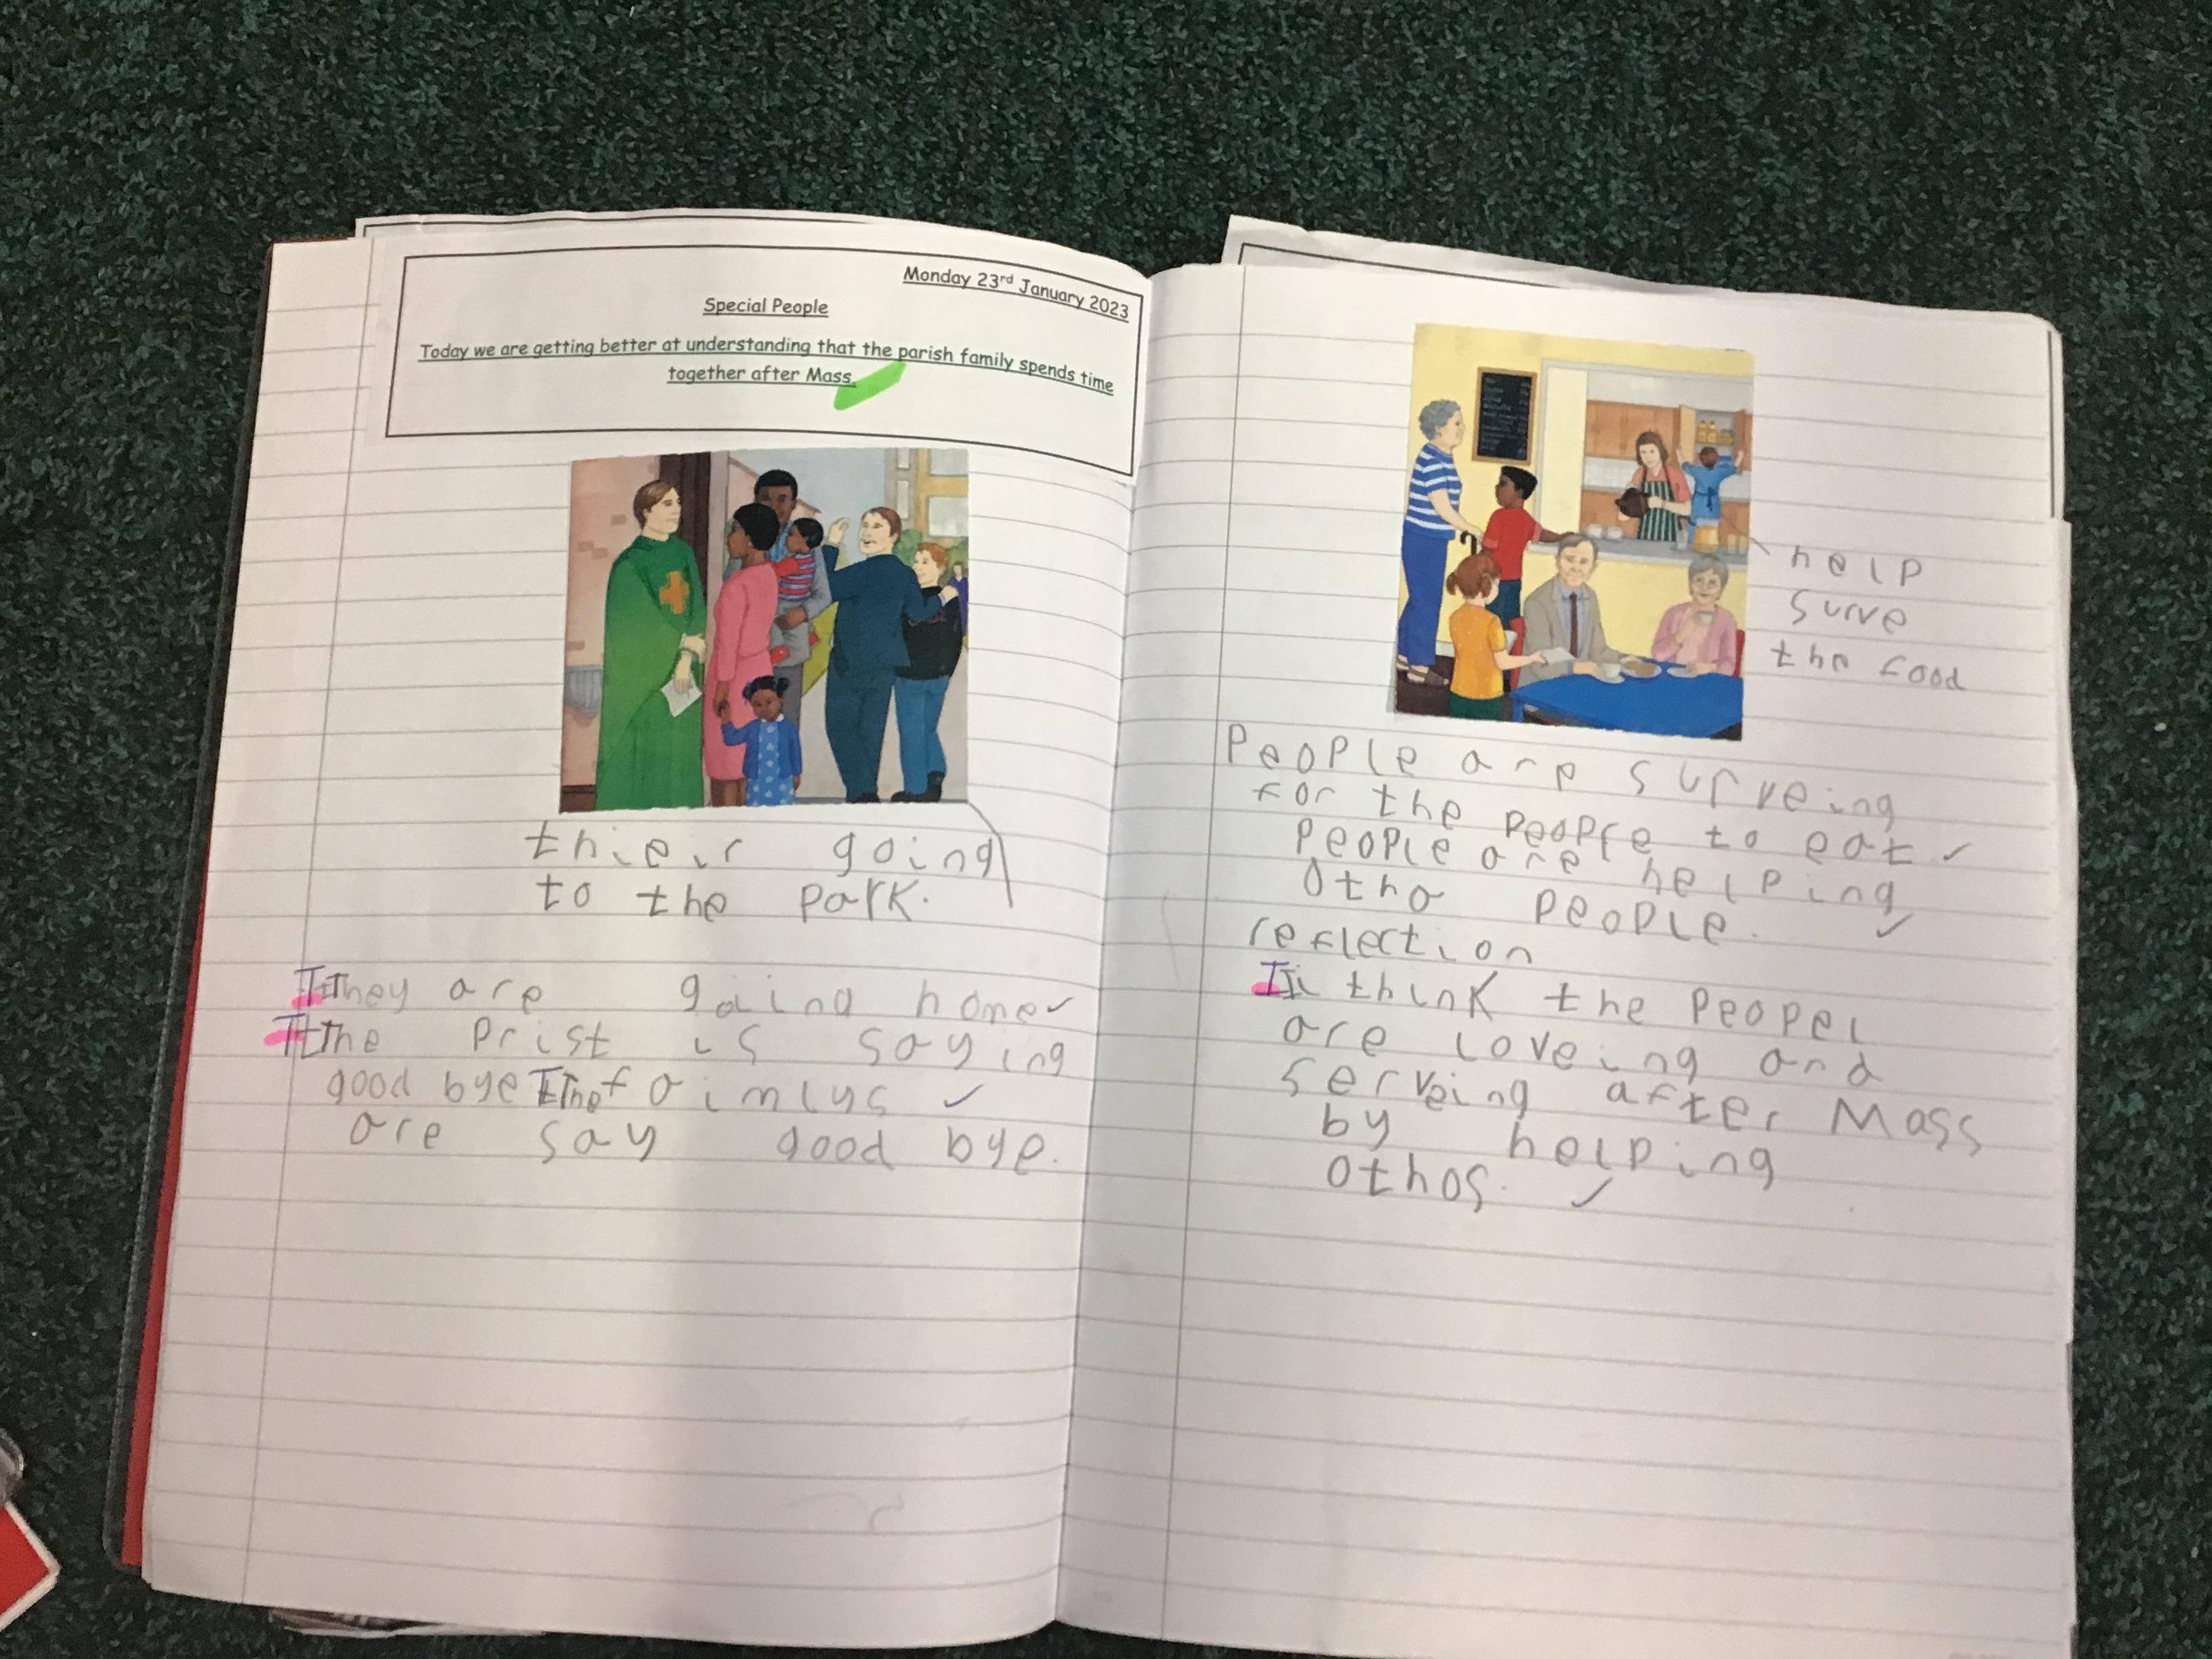 Monday 23rd January 2023
Special People
Today we are getting better at understanding that the parish family spends time
together after Mass.
thieir going
to the park.
They are going home
The Prist is saying
good bye The faimlys
are say good bye.
help
surve
the food
People are surveing
for the people to eat
people are helping
Otho people.
reflection
I think the peopel
are loveing and
serveing after Mass
by helping
othos.